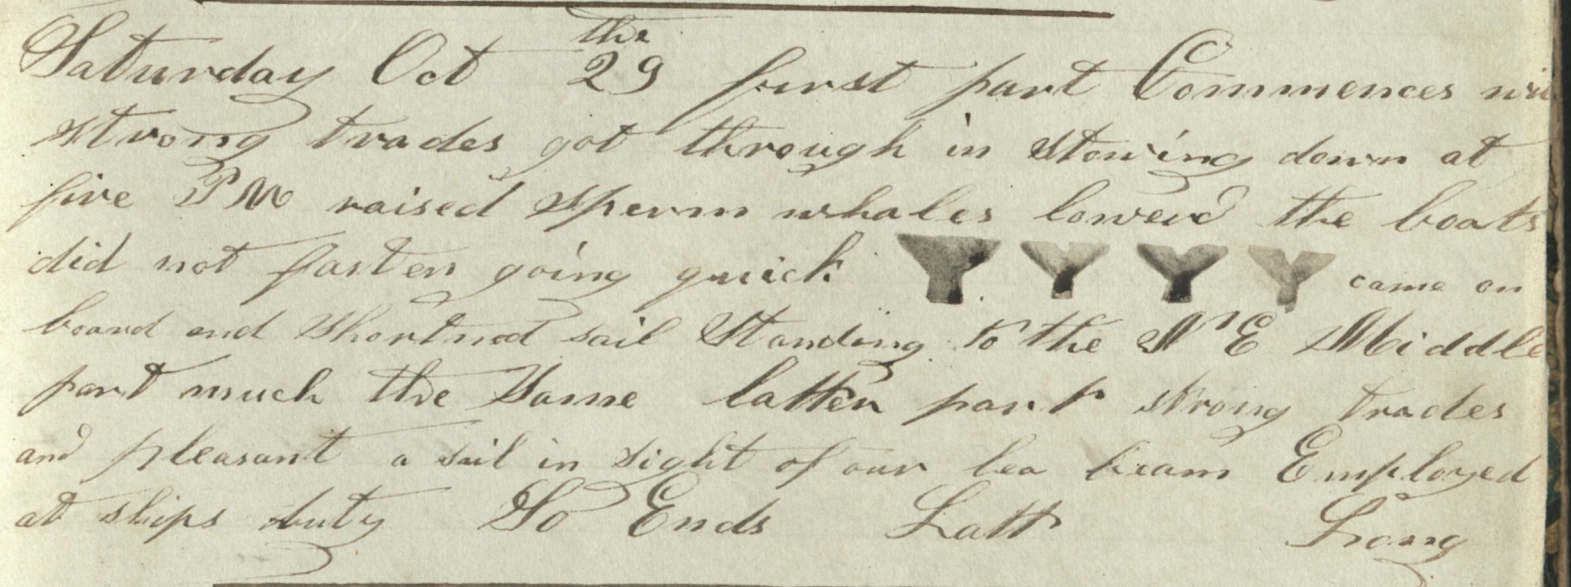 Saturday Oct 29 the first part Commences wi
strong trades got through in stowing down at
five PM raised sperm whales lowerd the boats
did not fasten going quick came on
board and shortned sail Standing to the N E Middle
part much the Same latter part strong trades
and pleasant a sail in sight of our lea beam Employed
at ships duty So Ends Latt Long